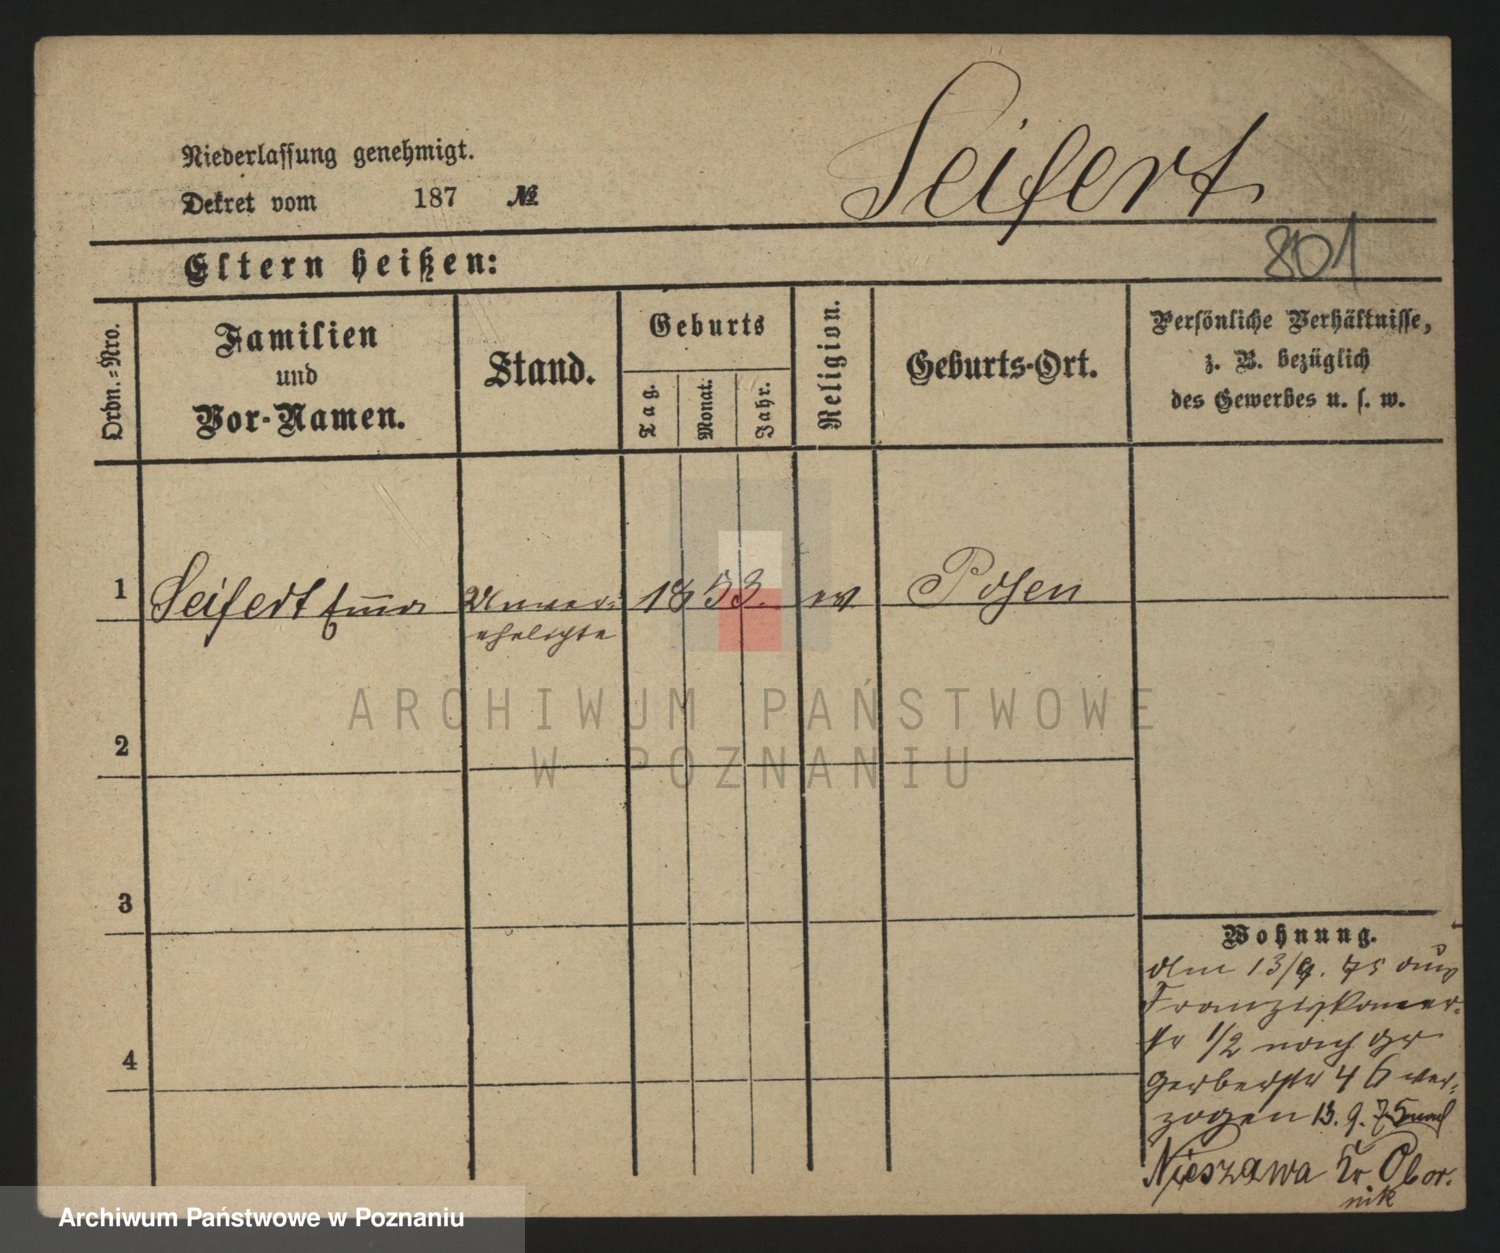 Seifert
Niederlassung genehmigt.
Dekret vom 187 №
801
Eltern heißen:
Ordn.-Nro.
Familien
und
Vor-Namen.
Stand.
Geburts
Tag.
Monat.
Jahr.
Religion.
Geburts-Ort.
Persönliche Verhältnisse,
z. B. bezüglich
des Gewerbes u. s. w.
1 Seifert Emma Unver- 1853. ev Posen
ehelichte
2
3
4
Wohnung.
Am 13/9. 75 aus
Franziskaner-
str 1/2 nach Gr
Gerberstr 46 ver-
zogen 13. 9. 75 nach
Nieszawa Kr Obor-
nik
ARCHIWUM PAŃSTWOWE
W POZNANIU
Archiwum Państwowe w Poznaniu